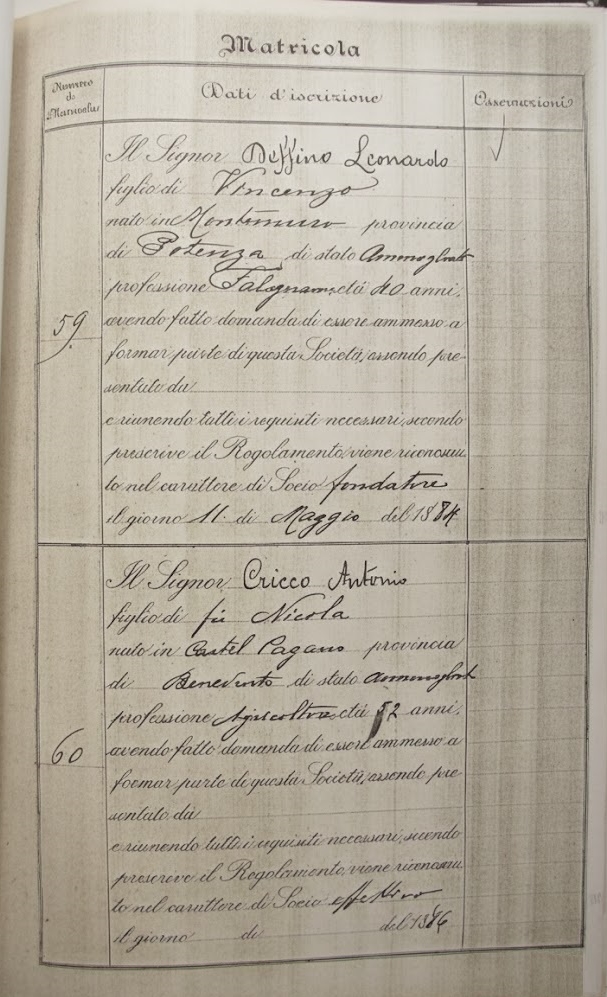 Matricola
Numero
di
Matricola
Dati d'iscrizione
Osservazioni
59
Il Signor Deffino Leonardo
figlio di Vincenzo
nato in Montemurro provincia
di Potenza di stato Ammogliato
professione Falegname, età 40 anni,
avendo fatto domanda di essere ammesso a
formar parte di questa Società, essendo pre-
sentato da
e riunendo tutti i requisiti necessari, secondo
prescrive il Regolamento, viene riconosciu
to nel carattere di Socio fondatore
il giorno 11 di Maggio del 1884
60
Il Signor Cricco Antonio
figlio di fù Nicola
nato in Castel Pagano provincia
di Benevento di stato ammogliato
professione Agricoltore, età 52 anni,
avendo fatto domanda di essere ammesso a
formar parte di questa Società, essendo pre
sentato da
e riunendo tutti i requisiti necessari, secondo
prescrive il Regolamento, viene riconosciu
to nel carattere di Socio effettivo
il giorno di del 1886